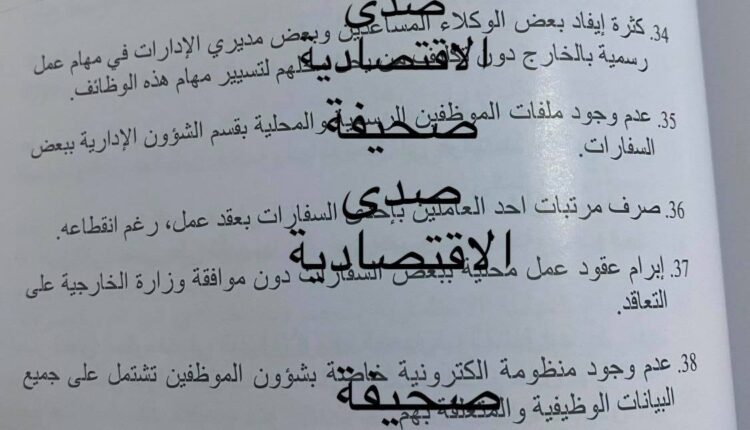 34. كثرة إيفاد بعض الوكلاء المساعدين وبعض مديري الإدارات في مهام عمل
رسمية بالخارج دون لتسيير مهام هذه الوظائف.
35. عدم وجود ملفات الموظفين الرسمية والمحلية بقسم الشؤون الإدارية ببعض
السفارات.
36. صرف مرتبات احد العاملين بإحدى السفارات بعقد عمل، رغم انقطاعه.
37. إبرام عقود عمل محلية ببعض السفارات دون موافقة وزارة الخارجية على
التعاقد.
38. عدم وجود منظومة الكترونية خاصة بشؤون الموظفين تشتمل على جميع
البيانات الوظيفية والمتعلقة بهم.
صدى
الاقتصادية
صحيفة
صدى
الاقتصادية
صحيفة